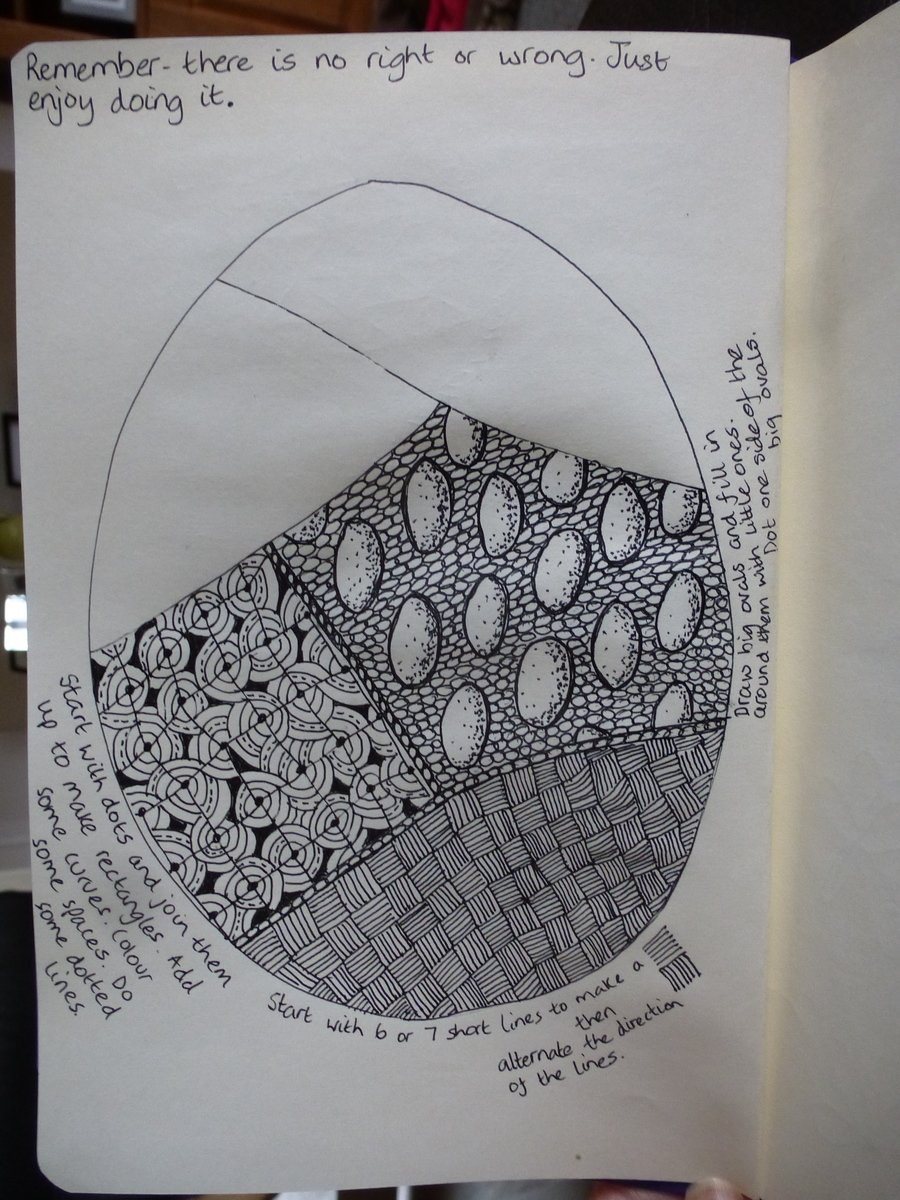 Remember- there is no right or wrong. Just
enjoy doing it.
Draw big ovals and fill in
around them with little ones.
Dot one side of the
big ovals.
Start with dots and join them
up to make rectangles. Add
some curves. Colour
some spaces. Do
some dotted
lines.
Start with 6 or 7 short lines to make a
then
alternate the direction
of the lines.